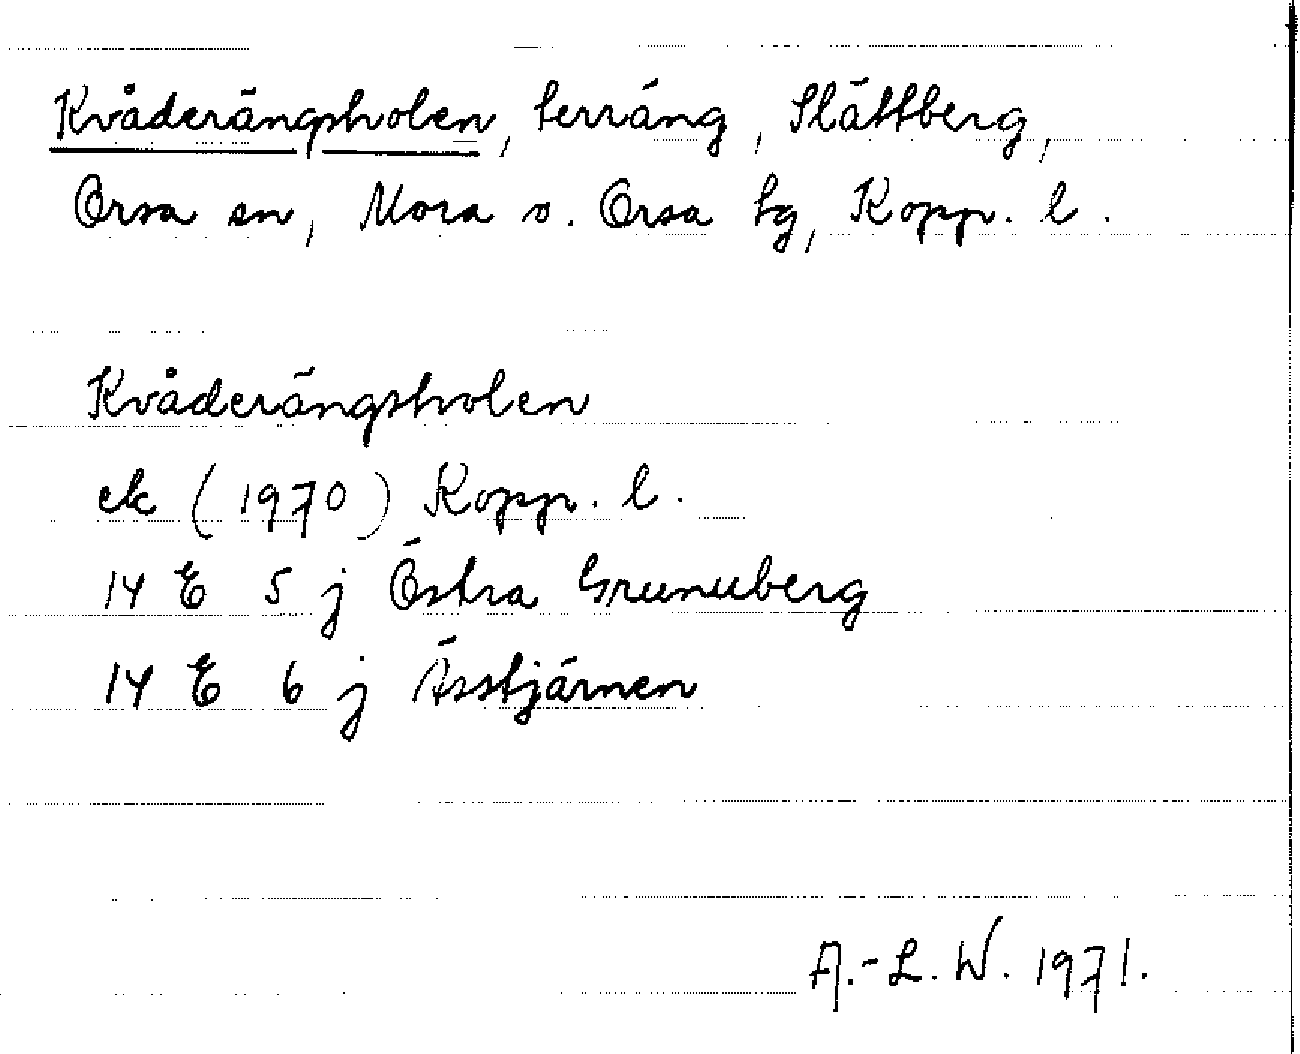 Kvåderängsholen, terräng, Slättberg,
Orsa sn, Mora o. Orsa tg, Kopp. l.
Kvåderängsholen
ek (1970) Kopp. l.
14 E 5 j Östra Grunuberg
14 E 6 j Ässtjärnen
A.-L. W. 1971.